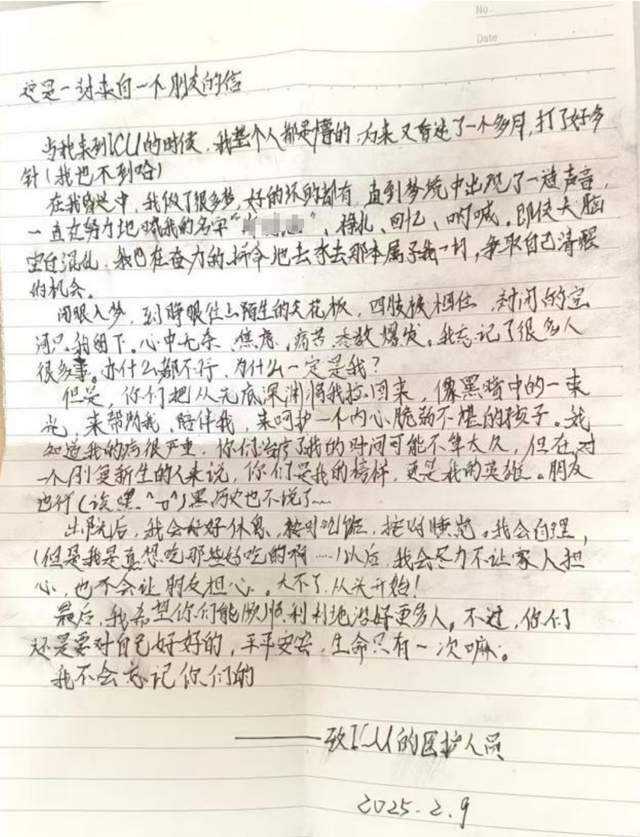 No.
Date
这是一封来自一个朋友的信
当我来到ICU的时候，我整个人都是懵的，后来又昏迷了一个多月，打了好多
针（我也不到哈）
在我昏迷中，我做了很多梦，好的坏的都有，直到梦境中出现了一道声音，
一直在努力地喊我的名字“”，挣扎、回忆、呐喊。即使大脑
空白混乱，我也在奋力的拼命地去夺去那本属于我一切，争取自己清醒
的机会。
闭眼入梦，到睁眼住上陌生的天花板，四肢被捆住，封闭的空
间只我留下。心中无奈、焦虑、痛苦、悉数爆发。我忘记了很多人
很多事。办什么都不行，为什么一定是我？
但是，你们把从无底深渊将我拉回来，像黑暗中的一束
光，来帮助我，陪伴我，来呵护一个内心脆弱不堪的孩子。我
知道我的病很严重，你们治疗了我的时间可能不算太久，但在对
一个刚复新生的人来说，你们是我的榜样，更是我的英雄。朋友
也行（诶嘿 ^o^）黑历史也不说了……
出院后，我会好好休息，按时吃饭，按时。我会自理，
（但是我是真想吃那些好吃的啊……）以后，我会尽力不让家人担
心，也不会让朋友担心。大不了，从头开始！
最后，我希望你们能顺顺利利地治好更多人。不过，你们
还是要对自己好好的，平平安安，生命只有一次嘛。
我不会忘记你们的
———致ICU的医护人员
2025.2.9